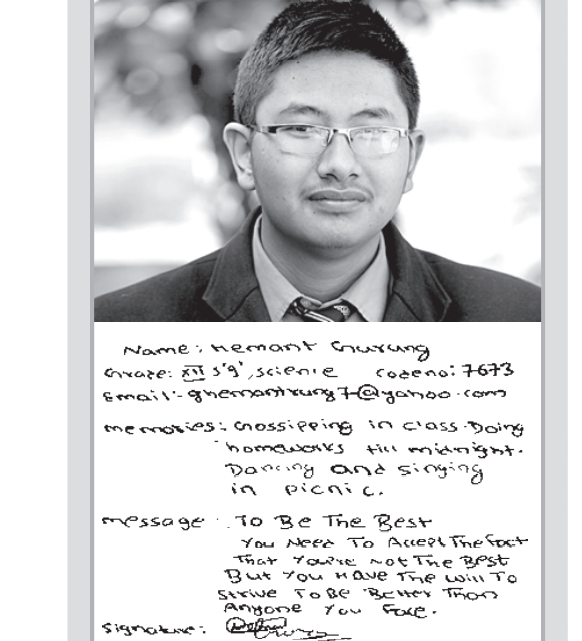 Name: Hemant Gurung
Grade: XII S'9', science Code no: 7673
Email:- ghemantrung7@yahoo.com
memories: Gossipping in class. Doing
homeworks till midnight.
Dancing and singing
in picnic.
message : To Be The Best
You Need To Accept The Fact
That You're not The Best
But You Have The Will To
strive To Be Better Than
Anyone You Face.
Signature: